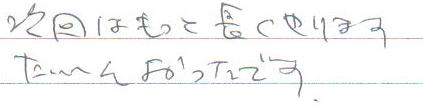 次回はもっと長くやります
たいへんよかったです